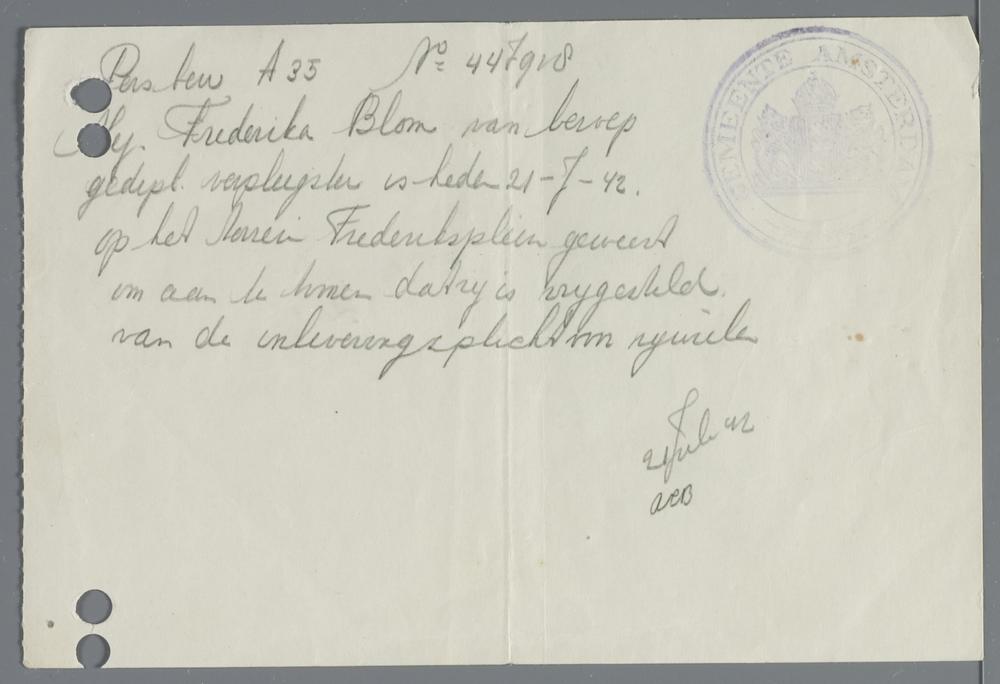 Pers. bew A 35 No 447918
GEMEENTE AMSTERDAM
Mej. Frederika Blom van beroep
gedipl. verpleegster is heden 21-7-42.
op het terrein Frederiksplein geweest
om aan te tonen dat zij is vrijgesteld.
van de inleveringsplicht van rijwielen
21 Juli 42